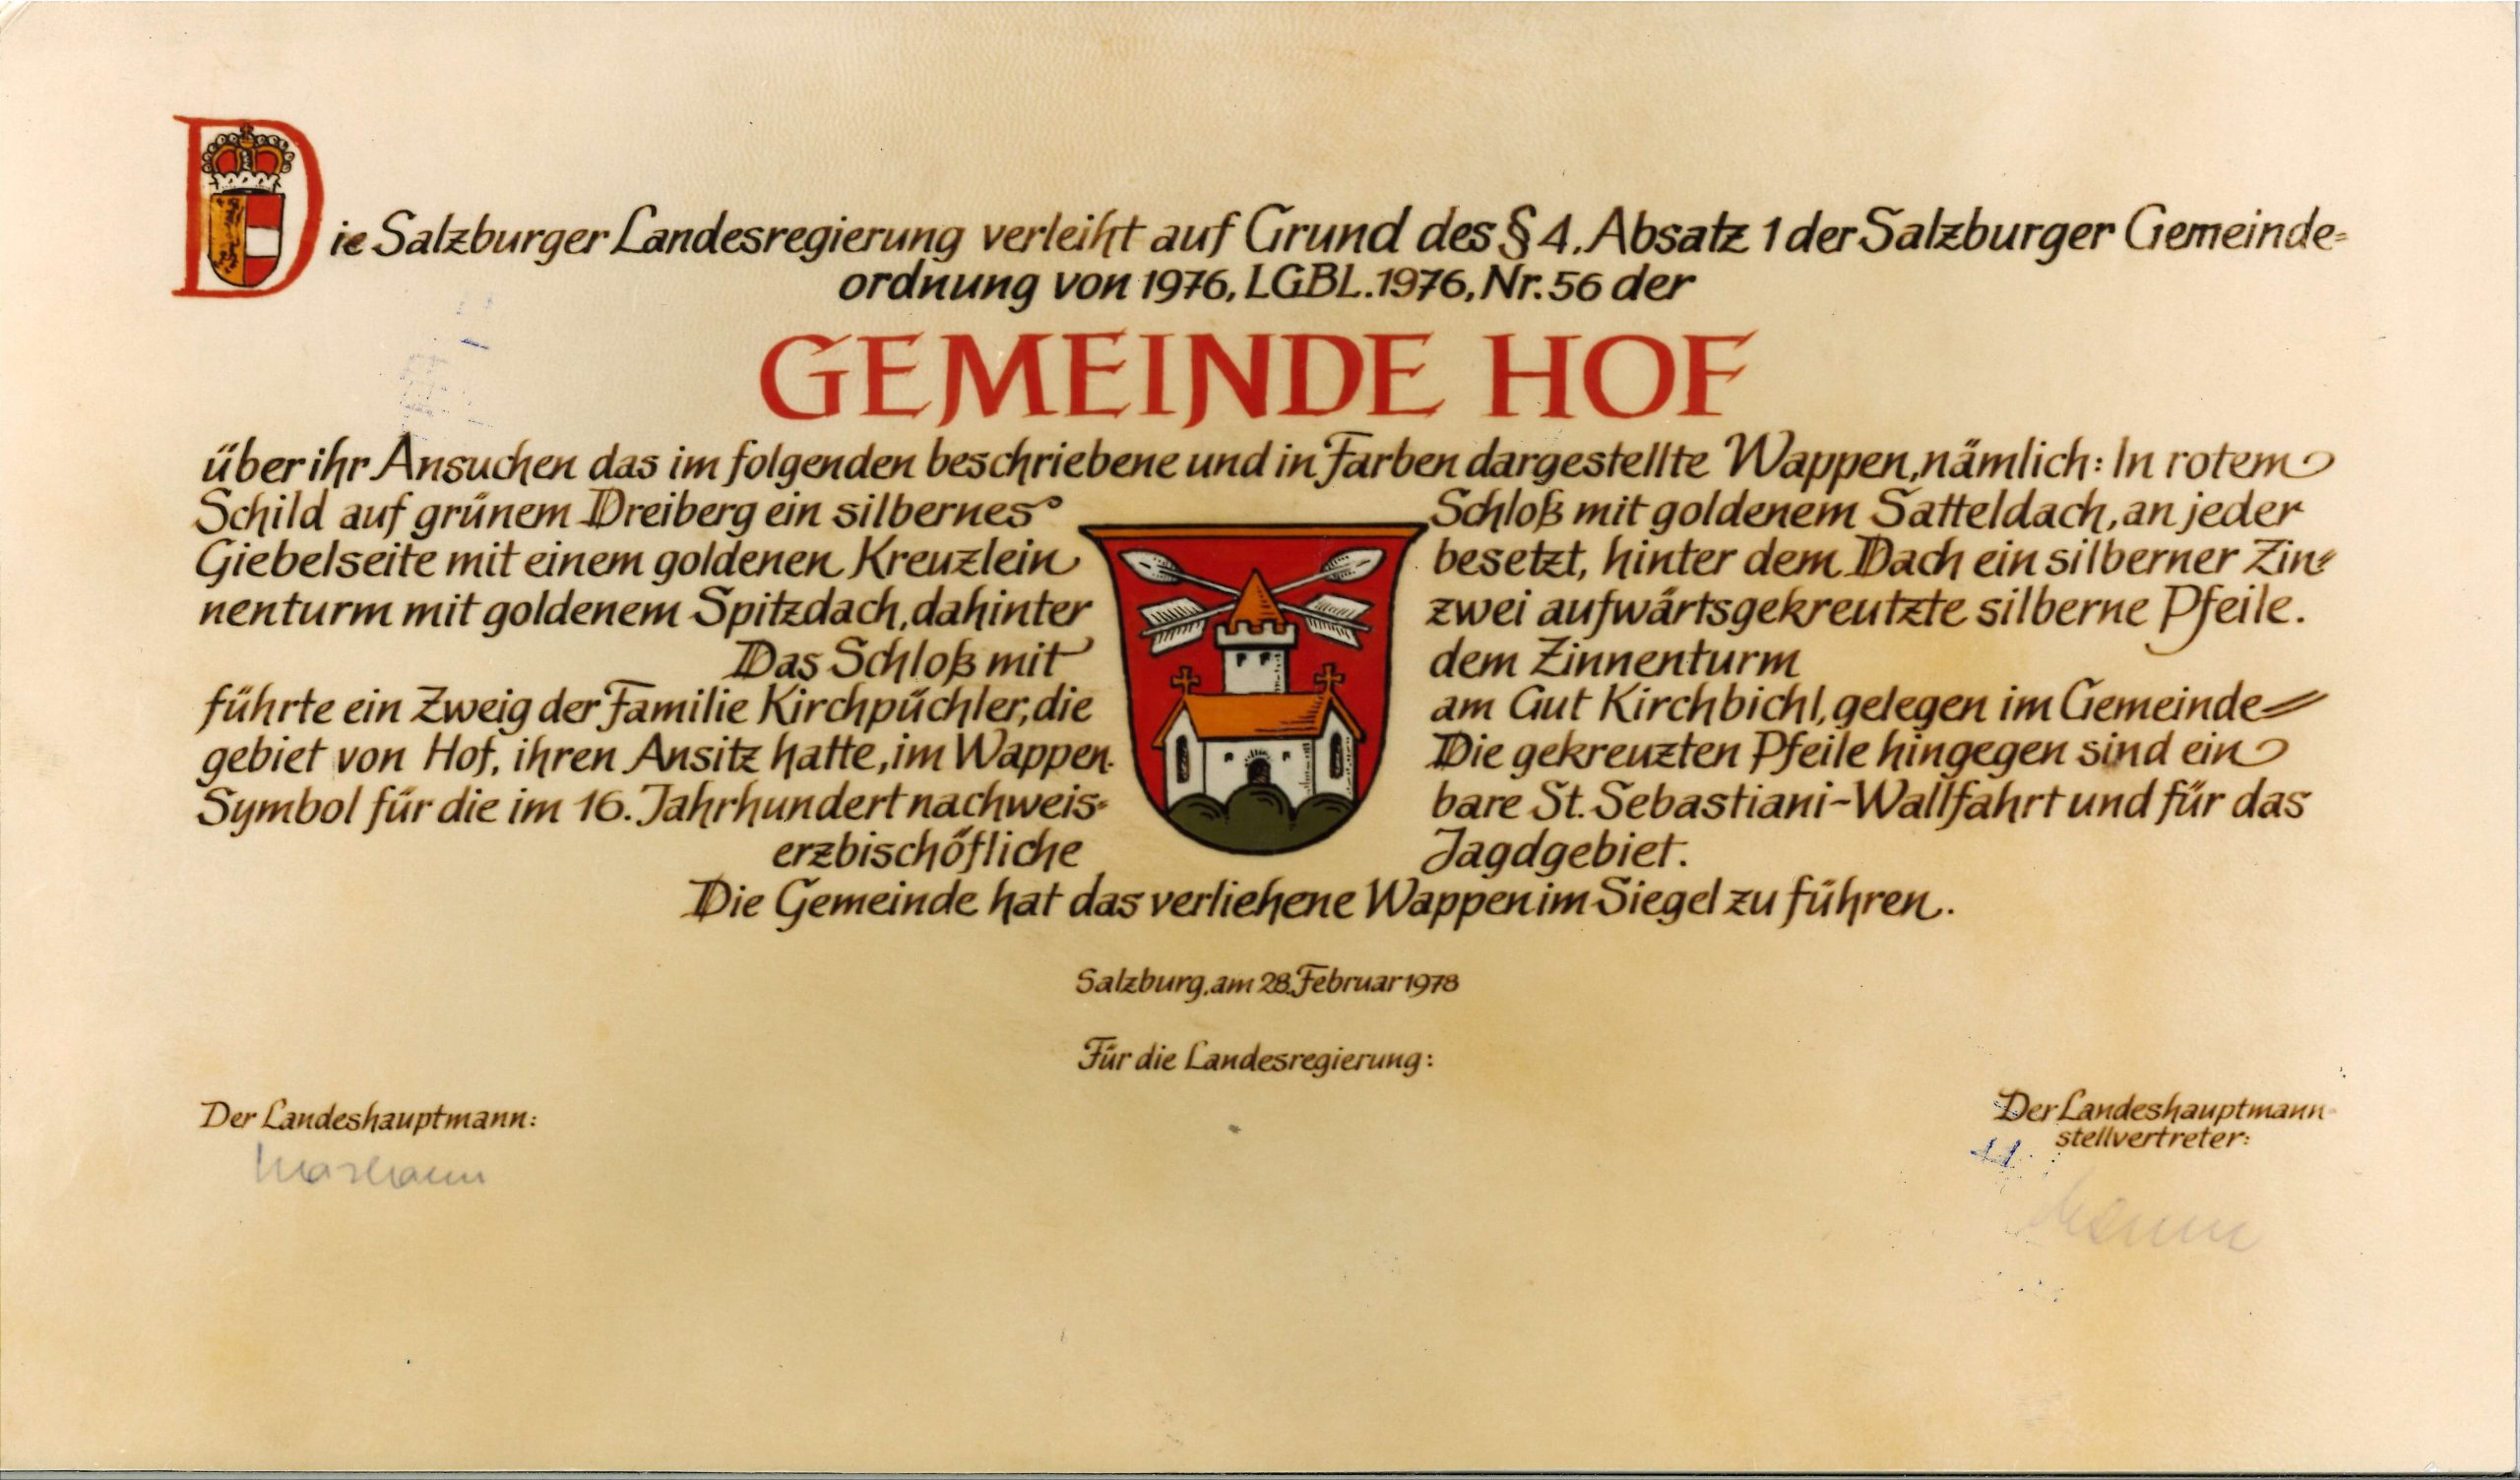 Die Salzburger Landesregierung verleiht auf Grund des § 4, Absatz 1 der Salzburger Gemeinde=
ordnung von 1976, LGBL. 1976, Nr. 56 der
GEMEINDE HOF
über ihr Ansuchen das im folgenden beschriebene und in Farben dargestellte Wappen, nämlich: In rotem
Schild auf grünem Dreiberg ein silbernes Schloß mit goldenem Satteldach, an jeder
Giebelseite mit einem goldenen Kreuzlein besetzt, hinter dem Dach ein silberner Zin=
nenturm mit goldenem Spitzdach, dahinter zwei aufwärtsgekreutzte silberne Pfeile.
Das Schloß mit dem Zinnenturm
führte ein Zweig der Familie Kirchpüchler, die am Gut Kirchbichl, gelegen im Gemeinde=
gebiet von Hof, ihren Ansitz hatte, im Wappen. Die gekreuzten Pfeile hingegen sind ein
Symbol für die im 16. Jahrhundert nachweis= bare St. Sebastiani-Wallfahrt und für das
erzbischöfliche Jagdgebiet.
Die Gemeinde hat das verliehene Wappen im Siegel zu führen.
Salzburg, am 28. Februar 1978
Für die Landesregierung:
Der Landeshauptmann:
Der Landeshauptmann-
stellvertreter: